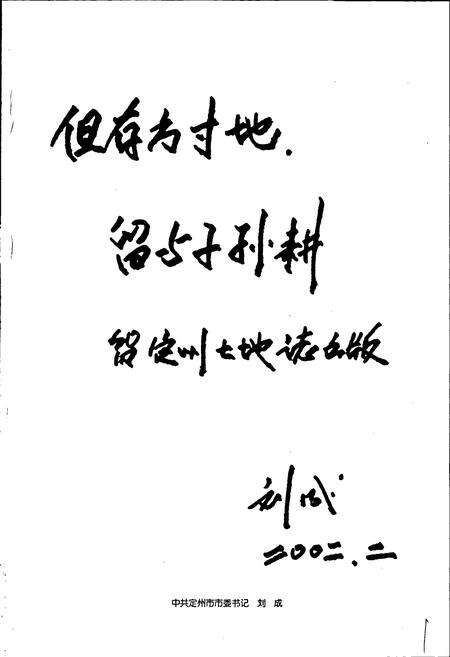 但存方寸地.
留与子孙耕
贺定州土地誌出版
刘成
二00二.二
中共定州市市委书记 刘 成